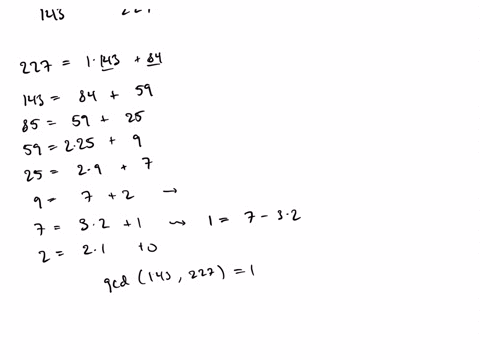 143
227 = 1·143 + 84
143 = 84 + 59
85 = 59 + 25
59 = 2·25 + 9
25 = 2·9 + 7
9 = 7 + 2 →
7 = 3·2 + 1 → 1 = 7 - 3·2
2 = 2·1 + 0
gcd (143, 227) = 1